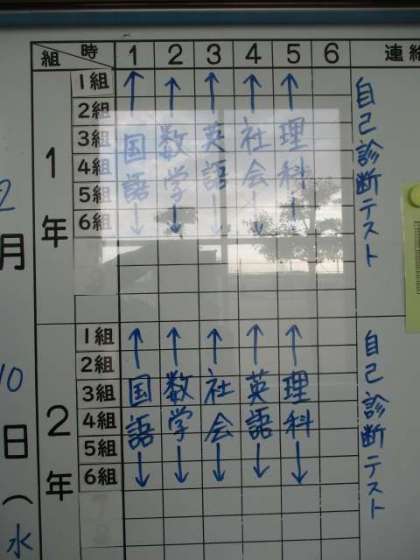 組 時 1 2 3 4 5 6 連絡
1年
1組
2組
3組
4組
5組
6組
国語 数学 英語 社会 理科
自己診断テスト
2年
1組
2組
3組
4組
5組
6組
国語 数学 社会 英語 理科
自己診断テスト
2月
10日(水